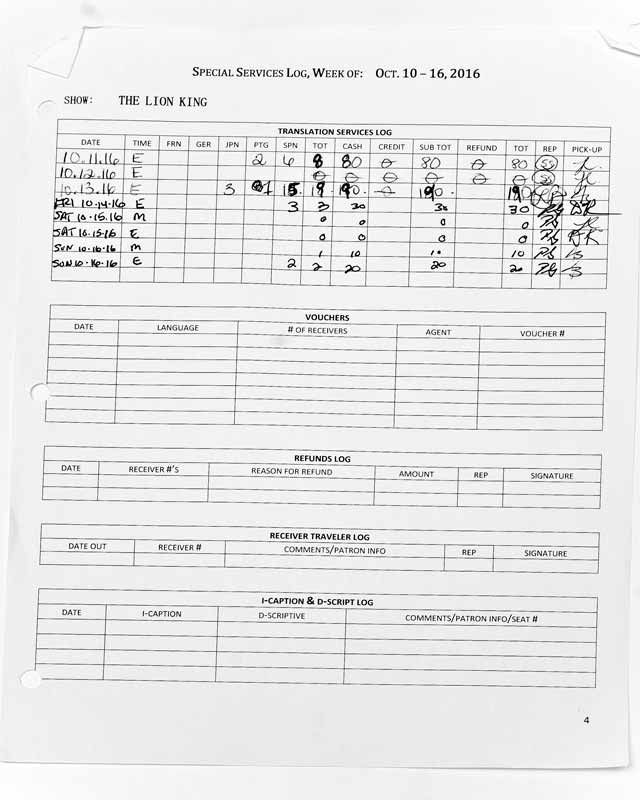 SPECIAL SERVICES LOG, WEEK OF: OCT. 10 – 16, 2016
SHOW: THE LION KING
TRANSLATION SERVICES LOG
DATE TIME FRN GER JPN PTG SPN TOT CASH CREDIT SUB TOT REFUND TOT REP PICK-UP
10.11.16 E 2 6 8 80 0 80 0 80 SS
10.12.16 E 0 0 0 0 0 0 SS
10.13.16 E 3 1 15 19 190. 0 190. 190
FRI 10.14.16 E 3 3 30 30 30
SAT 10.15.16 M 0 0 0 0
SAT 10.15.16 E 0 0 0 0
SUN 10.16.16 M 1 10 10 10
SUN 10.16.16 E 2 2 20 20 20
VOUCHERS
DATE LANGUAGE # OF RECEIVERS AGENT VOUCHER #
REFUNDS LOG
DATE RECEIVER #'S REASON FOR REFUND AMOUNT REP SIGNATURE
RECEIVER TRAVELER LOG
DATE OUT RECEIVER # COMMENTS/PATRON INFO REP SIGNATURE
I-CAPTION & D-SCRIPT LOG
DATE I-CAPTION D-SCRIPTIVE COMMENTS/PATRON INFO/SEAT #
4